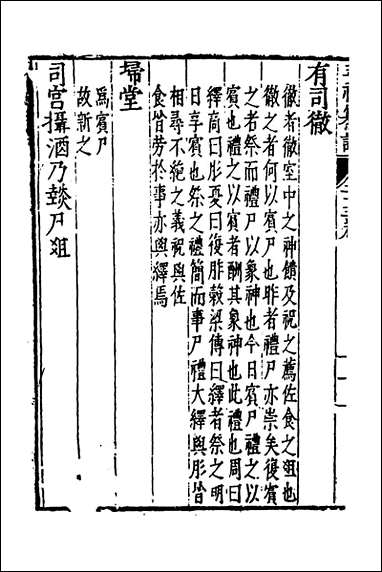 有司徹
徹者徹室中之神饋及祝之薦佐食之俎也
徹之者何以賓尸也䏶者禮尸亦崇矣復賓
之者祭而禮尸以象神也今日賓尸禮之以
賓也禮之以賓者酬其象神也此禮也周曰
繹商曰肜夏曰復胙穀梁傳曰繹者祭之明
日享賓也祭之禮簡而事尸禮大繹與肜皆
相尋不絶之義祝與佐
食皆勞於事亦與繹焉
埽堂
爲賓尸
故新之
司宮攝酒乃燅尸俎